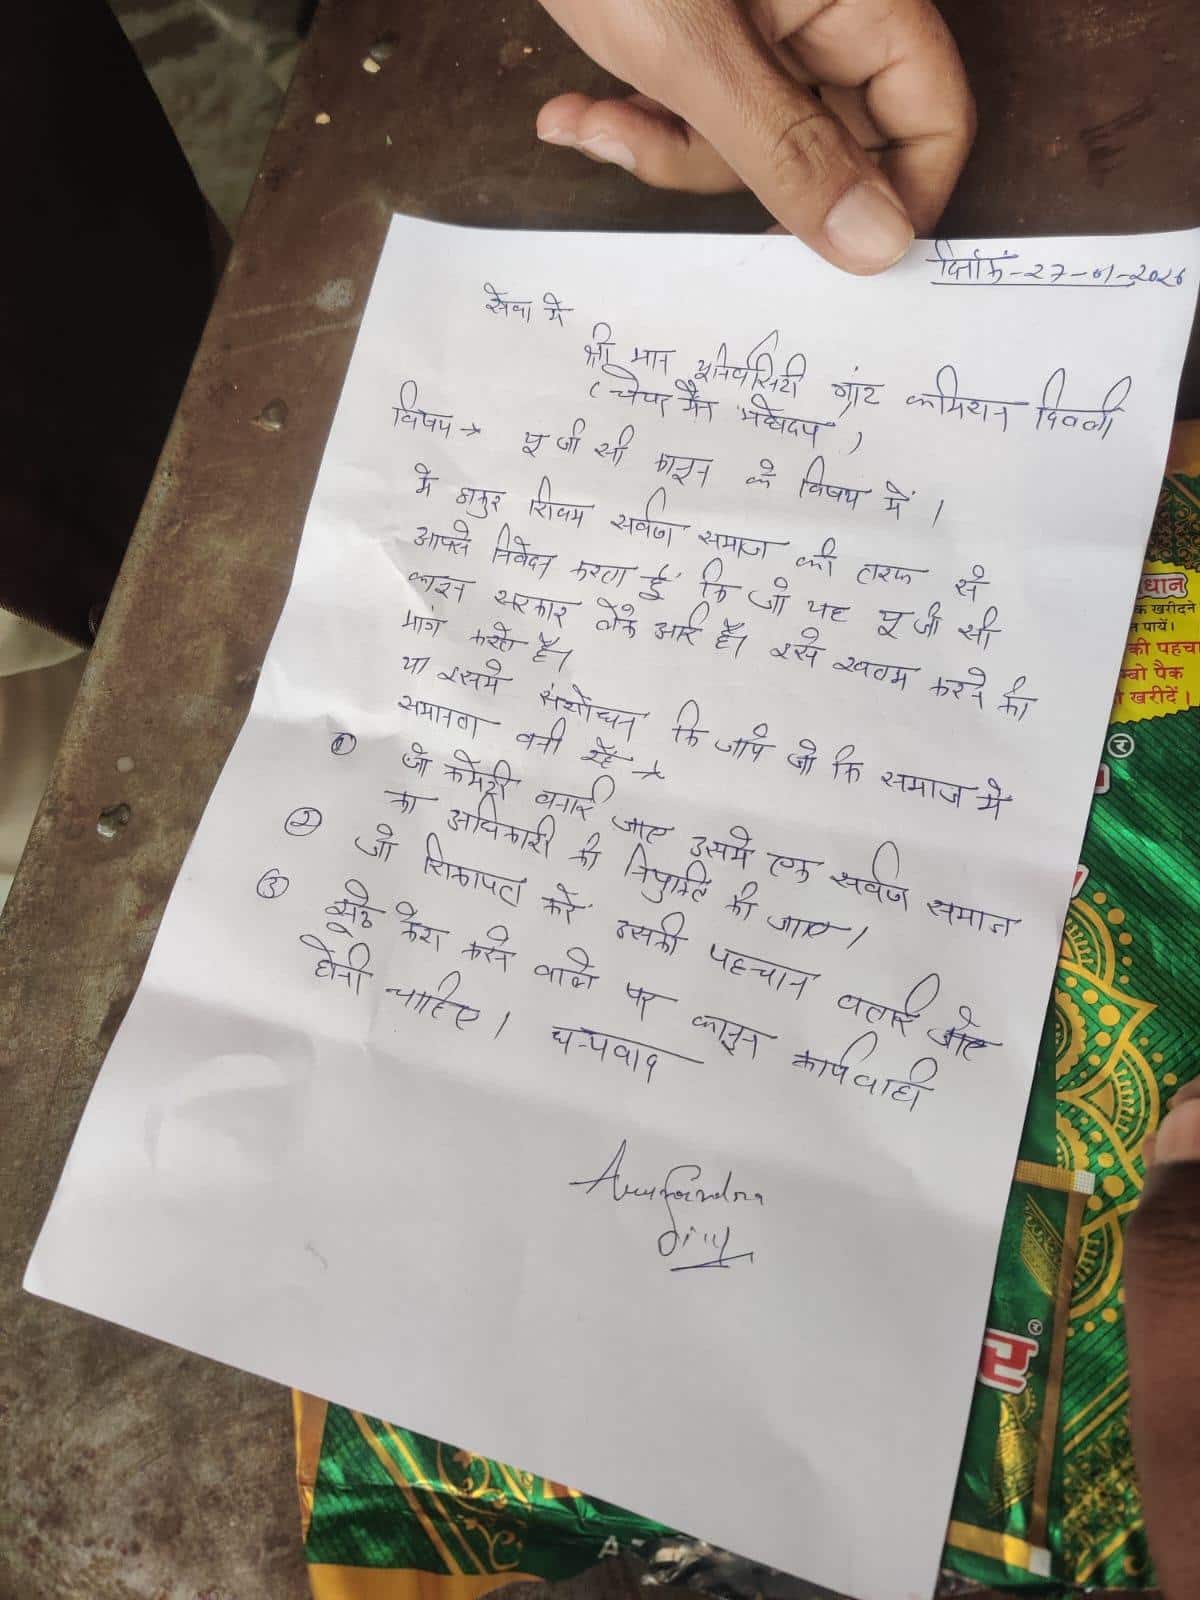 दिनांक-27-01-2026
सेवा में
श्री मान यूनिवर्सिटी ग्रांट कमिशन दिल्ली
(चेयर मैन महोदय)
विषय → यू जी सी कानून के विषय में।
मे ठाकुर शिवम सर्वण समाज की तरफ से
आपसे निवेदन करता हूँ कि जो यह यू जी सी
कानून सरकार लेके आई है। इसे खतम करने की
मांग करते है।
या इसमे संशोधन कि जाये जो कि समाज मे
समानता बनी रहे →
① जो कमेटी बनाई जाए उसमे एक सर्वण समाज
का अधिकारी की नियुक्ति की जाए।
② जो शिकायत करे उसकी पहचान बताई जाए
③ झूठे केश करने वाले पर कानून कार्यवाही
होनी चाहिए। धन्यवाद
धान
क खरीदने
पायें।
की पहचा
म्बो पैक
खरीदें।
®
®